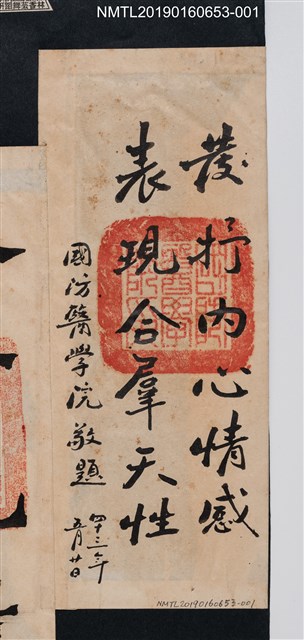 NMTL20190160653-001
發抒内心情感
表現合羣天性
國防醫學院敬題
四十三年
五月廿日
NMTL20190160653-001